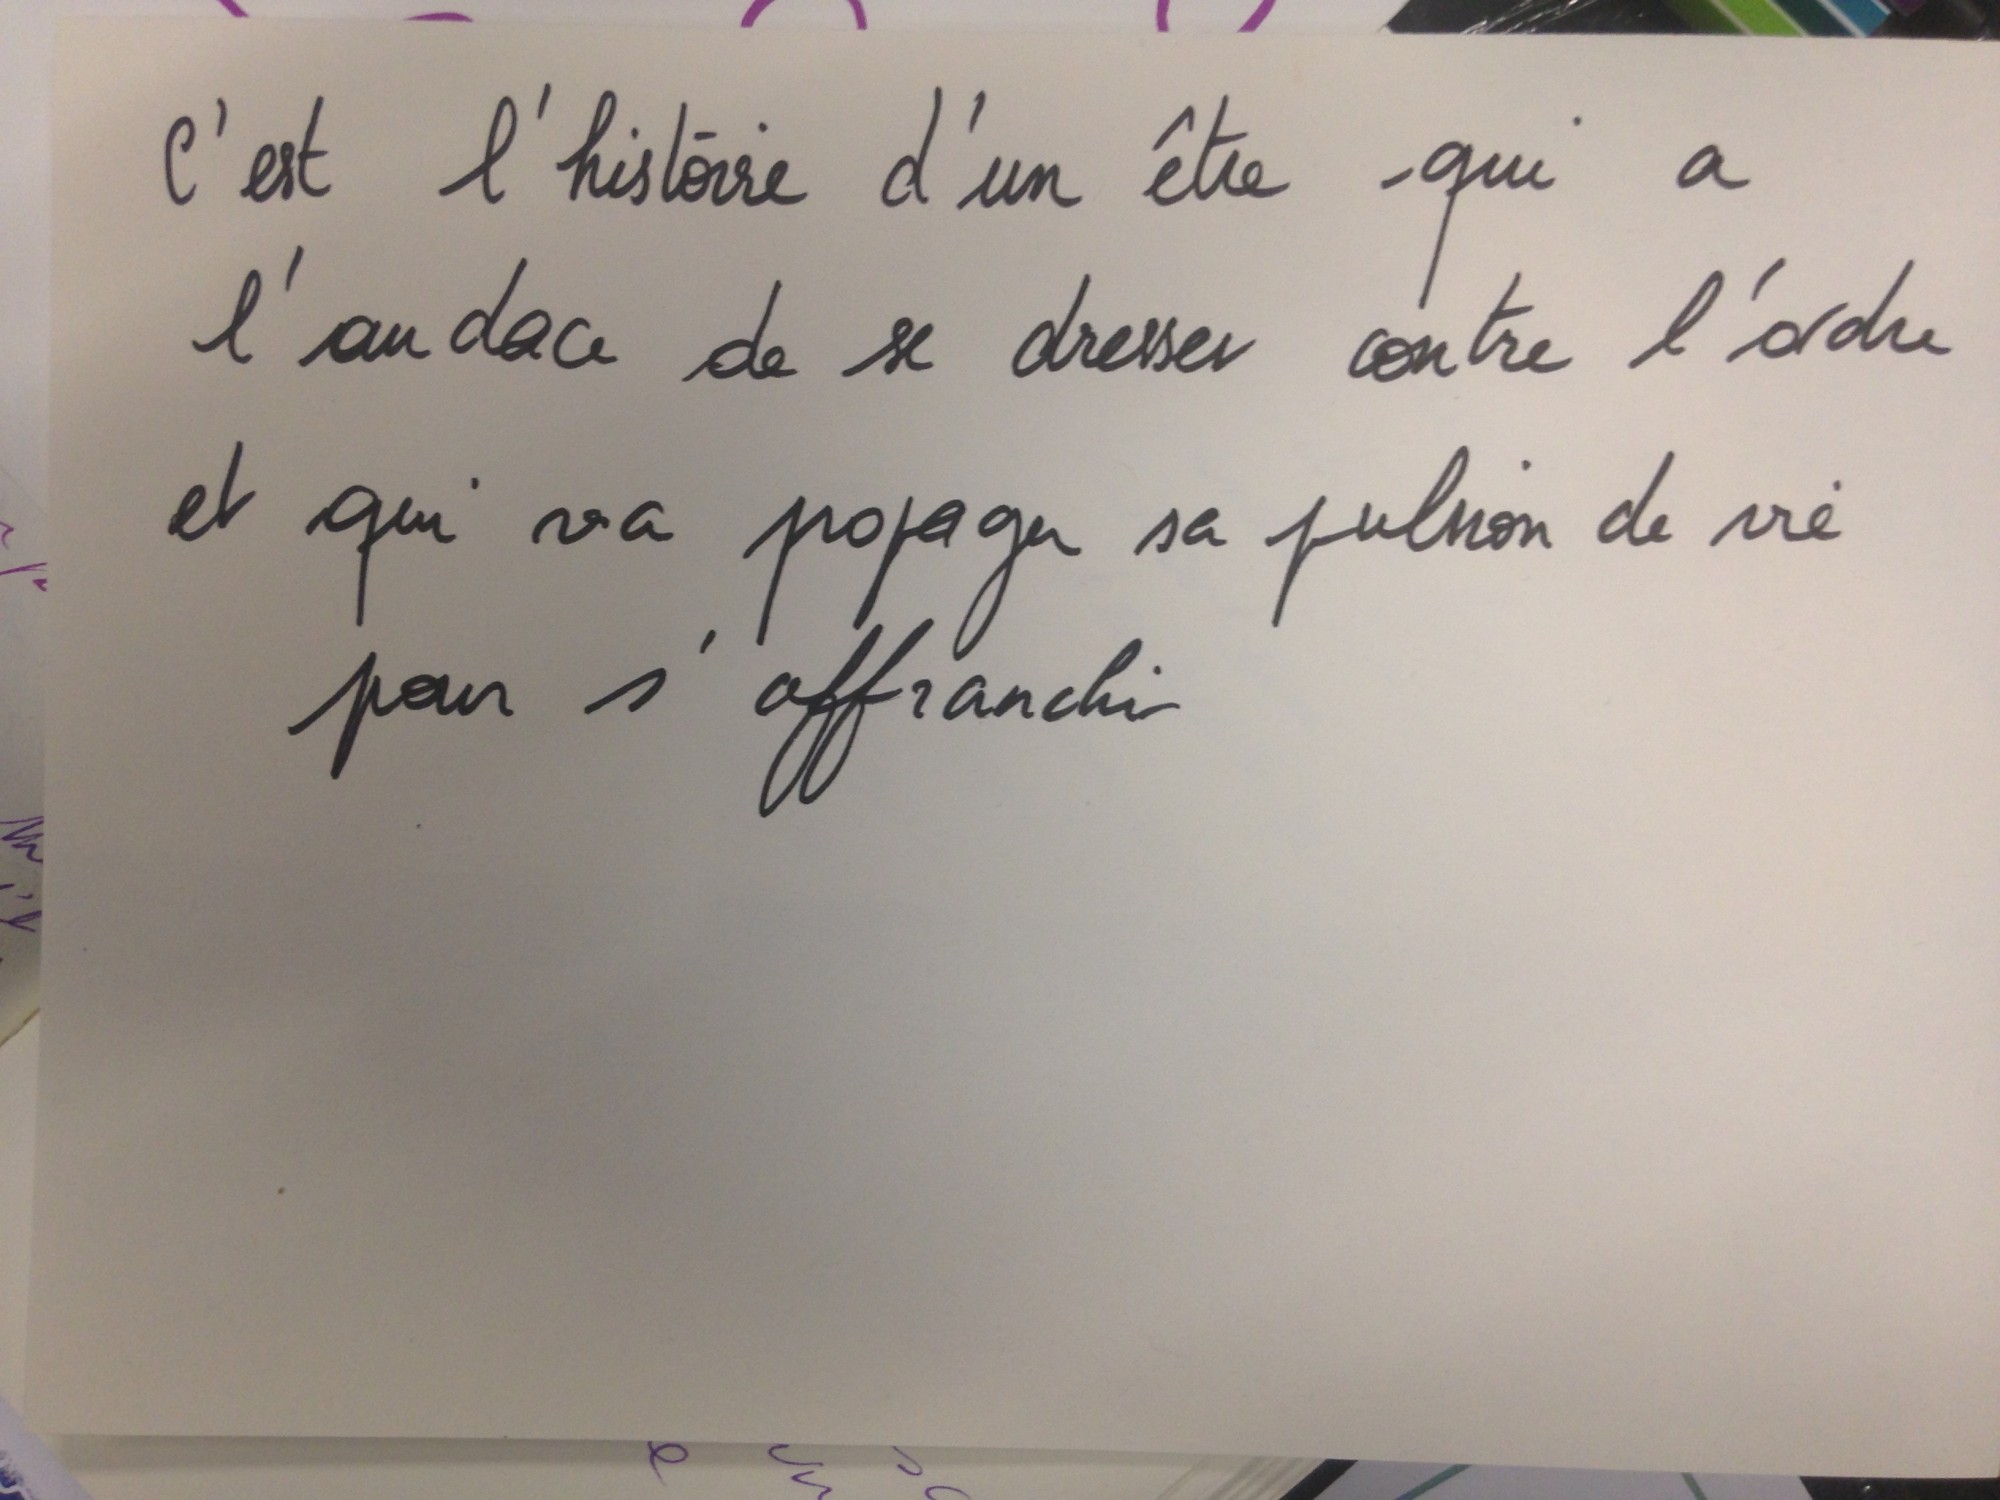 C'est l'histoire d'un être qui a
l'audace de se dresser contre l'ordre
et qui va popager sa pulsion de vie
pour s'affranchir